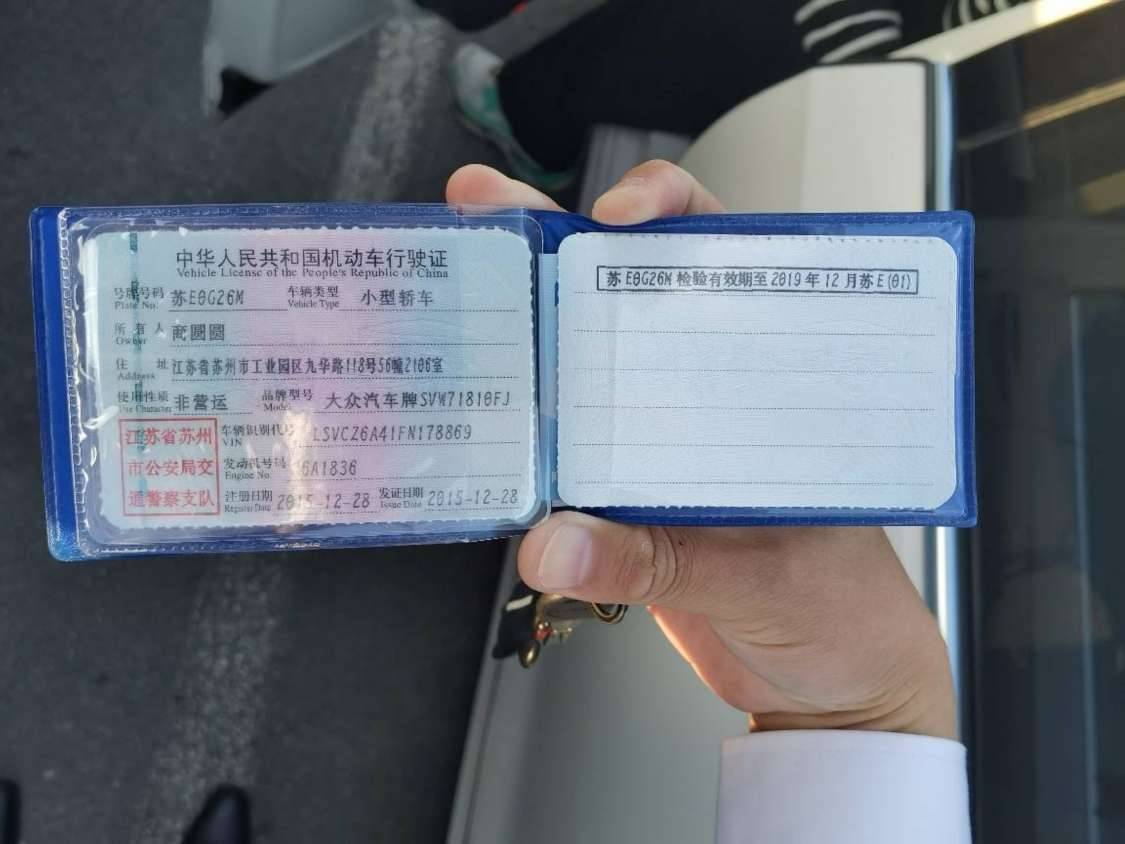 中华人民共和国机动车行驶证
Vehicle License of the People's Republic of China
号牌号码 苏E0G26M 车辆类型 小型轿车
Plate No. Vehicle Type
所有人 商圆圆
Owner
住址 江苏省苏州市工业园区九华路118号56幢2106室
Address
使用性质 非营运 品牌型号 大众汽车牌SVW71810FJ
Use Character Model
江苏省苏州
市公安局交
通警察支队
车辆识别代号 LSVCZ6A41FN178869
VIN
发动机号码 6A1836
Engine No.
注册日期 2015-12-28 发证日期 2015-12-28
Register Date Issue Date
苏E0G26M 检验有效期至2019年12月苏E(01)